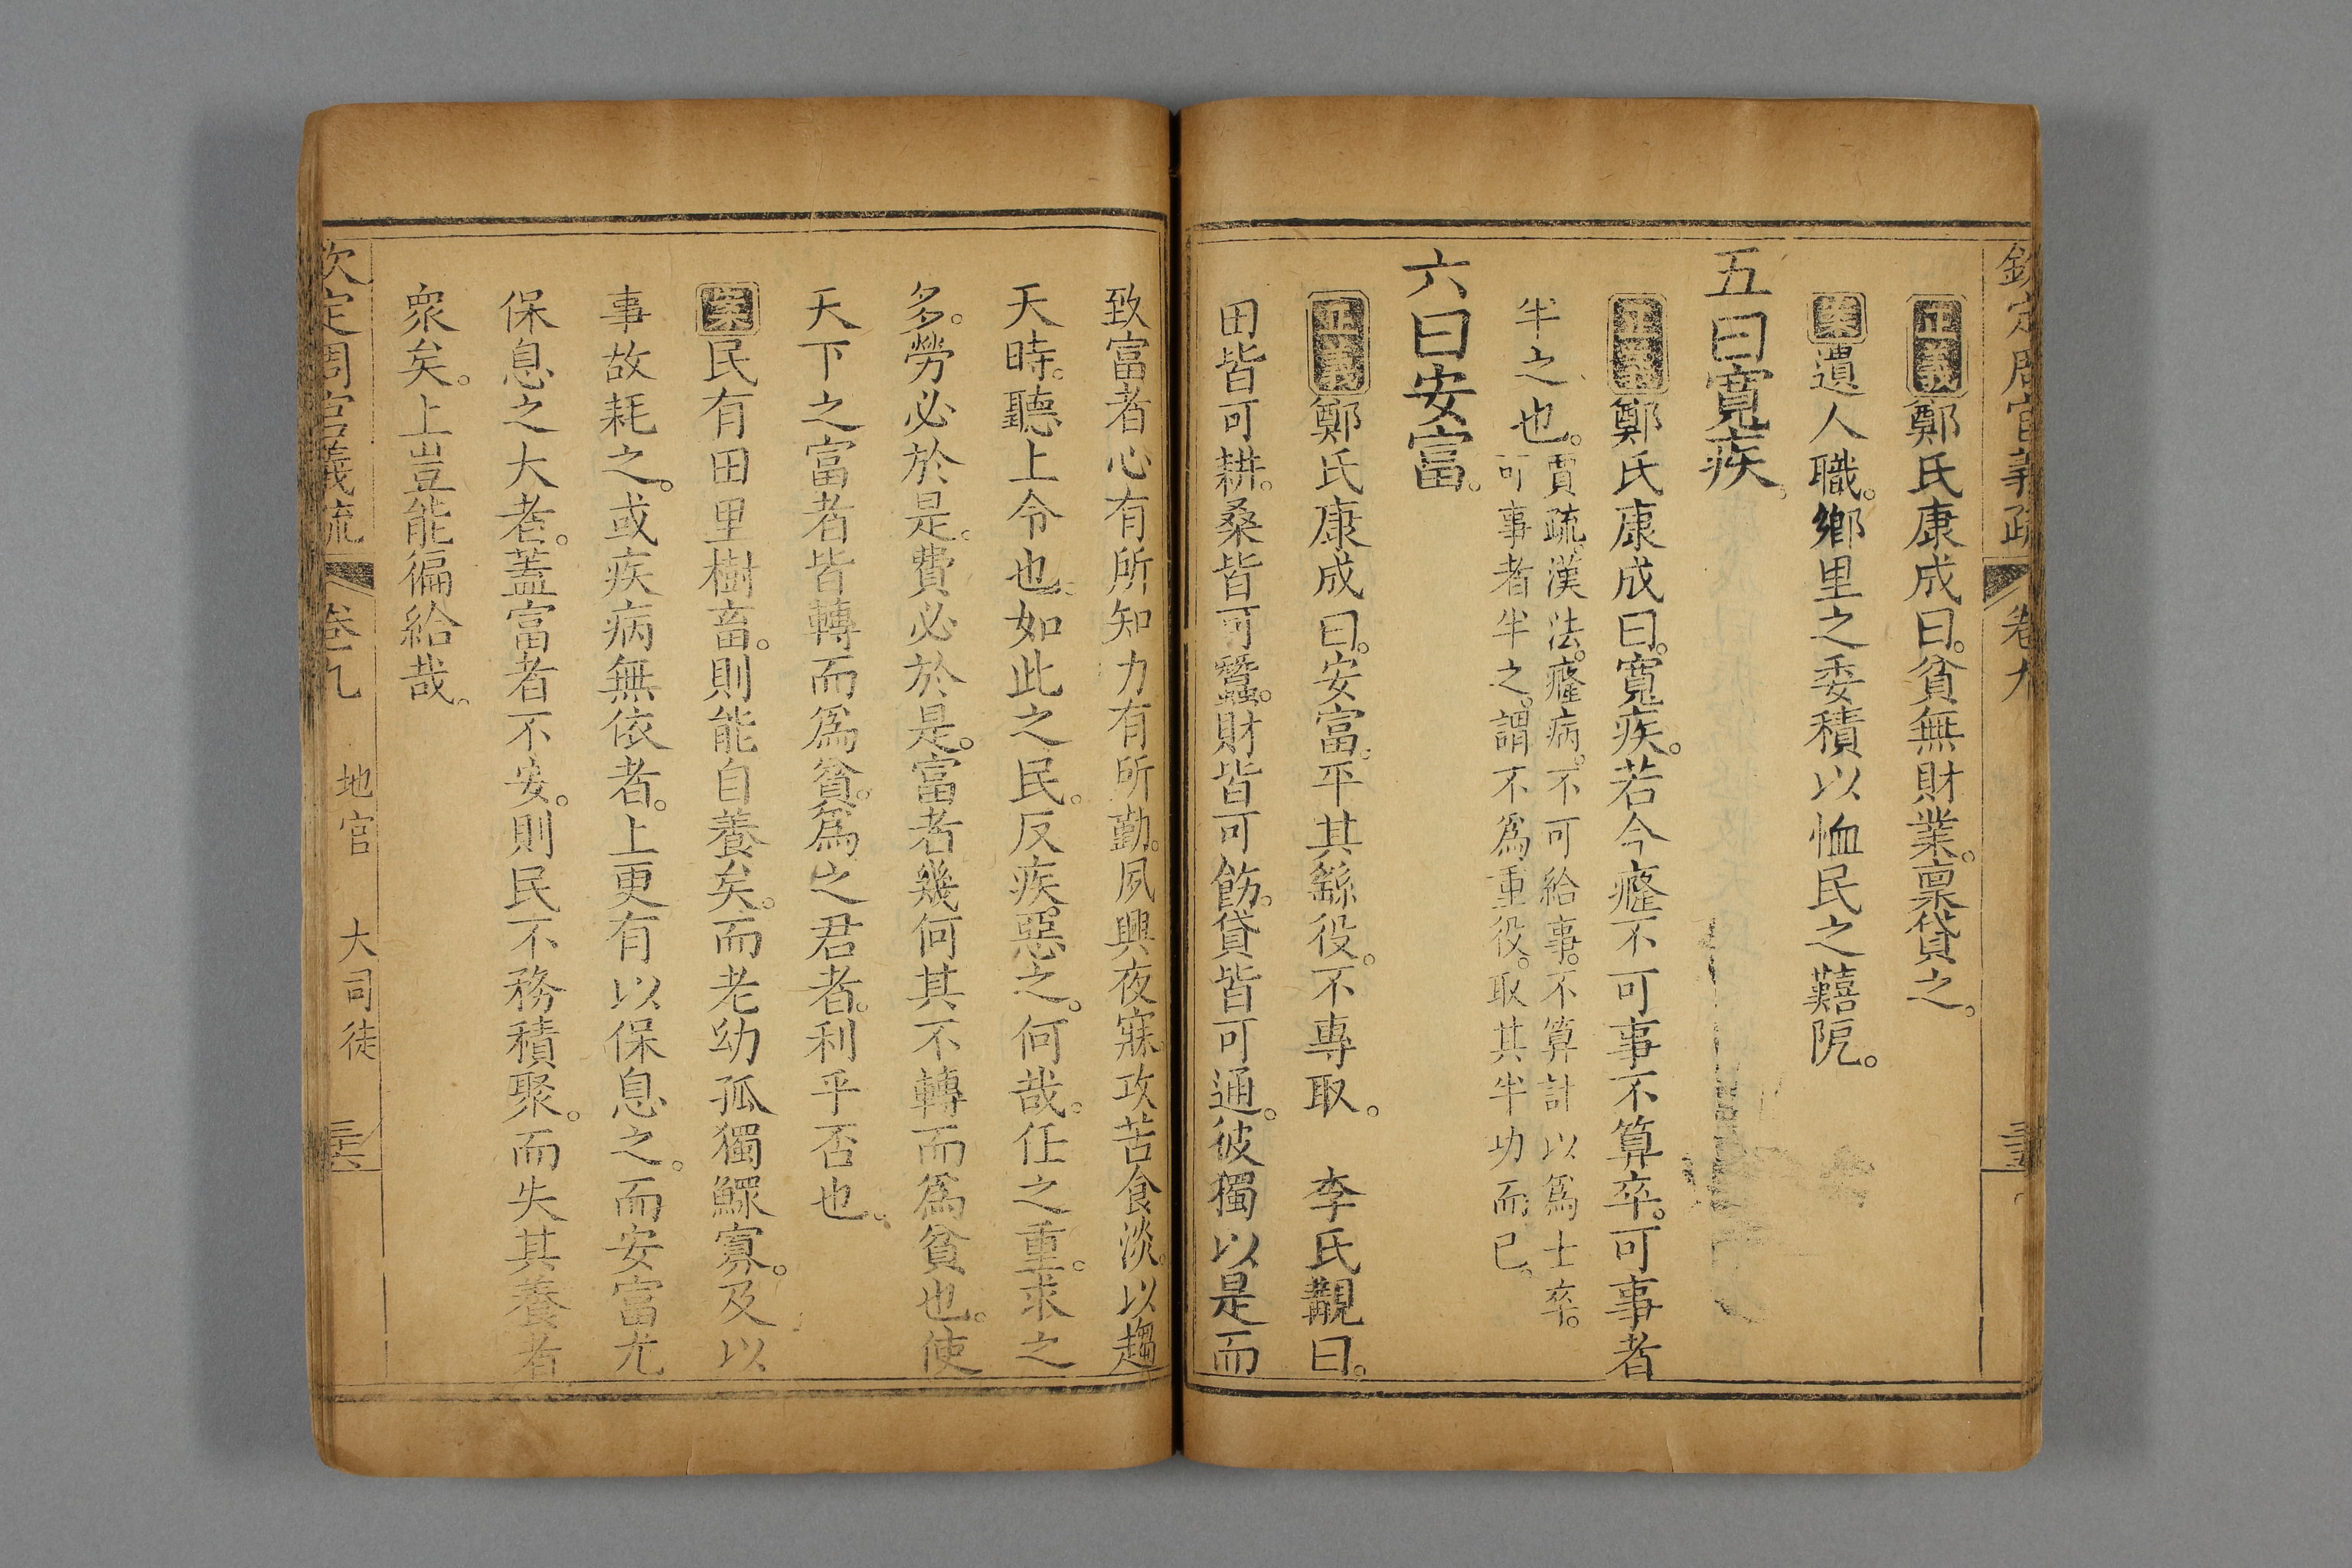 欽定周官義疏 卷九
正義鄭氏康成曰。貧無財業。稟貸之。
案遺人職。鄉里之委積以恤民之囏阨。
五曰寬疾。
正義鄭氏康成曰。寬疾。若今癃不可事不算卒。可事者
半之也。
賈疏。漢法。癃病。不可給事。不算計以為士卒。
可事者半之。謂不為重役。取其半功而已。
六曰安富。
正義鄭氏康成曰。安富。平其繇役。不專取。 李氏覯曰。
田皆可耕。桑皆可蠶。財皆可飭。貸皆可通。彼獨以是而
致富者心有所知力有所勤。夙興夜寐。攻苦食淡。以趨
天時。聽上令也。如此之民。反疾惡之。何哉。任之重。求之
多。勞必於是。費必於是。富者幾何其不轉而為貧也。使
天下之富者皆轉而為貧。為之君者。利乎否也。
案民有田里樹畜。則能自養矣。而老幼孤獨鰥寡。及以
事故耗之。或疾病無依者。上更有以保息之。而安富尤
保息之大者。蓋富者不安。則民不務積聚。而失其養者
衆矣。上豈能徧給哉。
欽定周官義疏 卷九 地官 大司徒